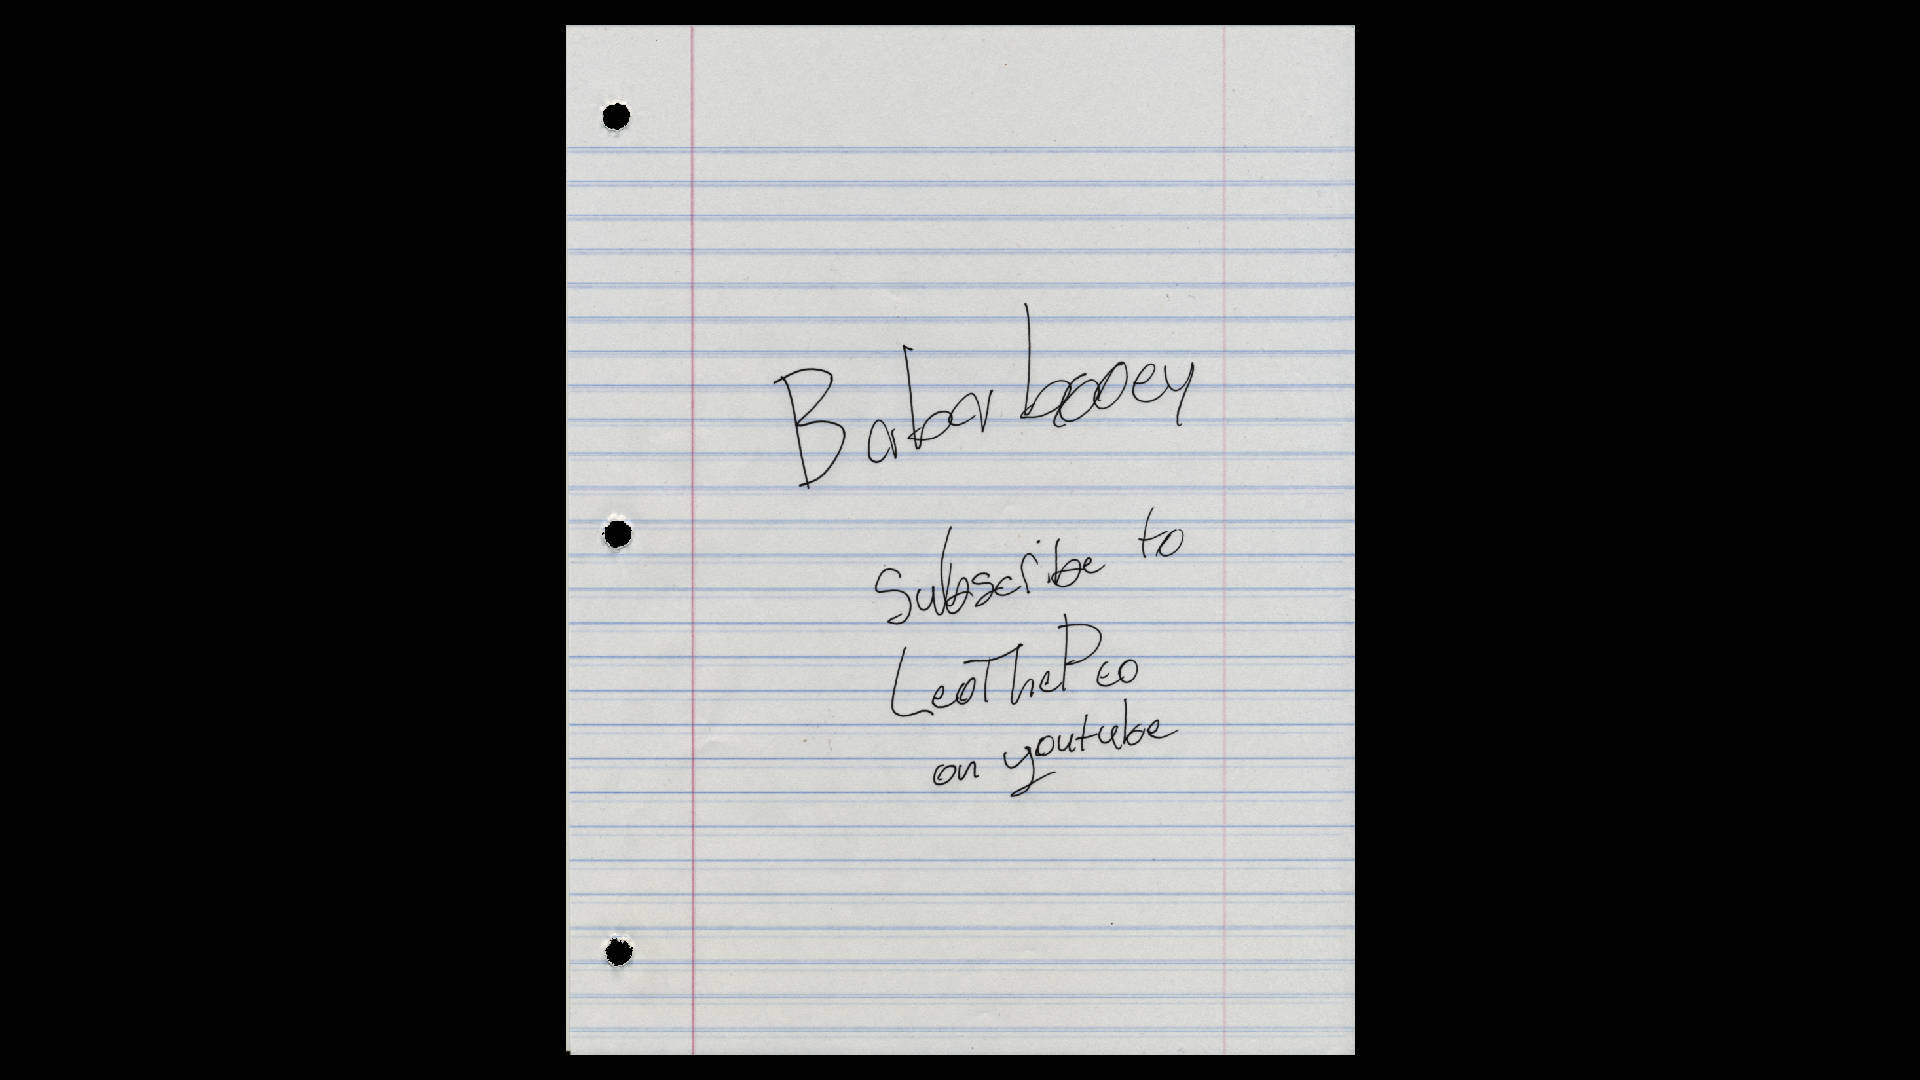 Bababooey
Subscribe to
LeoThePeo
on youtube